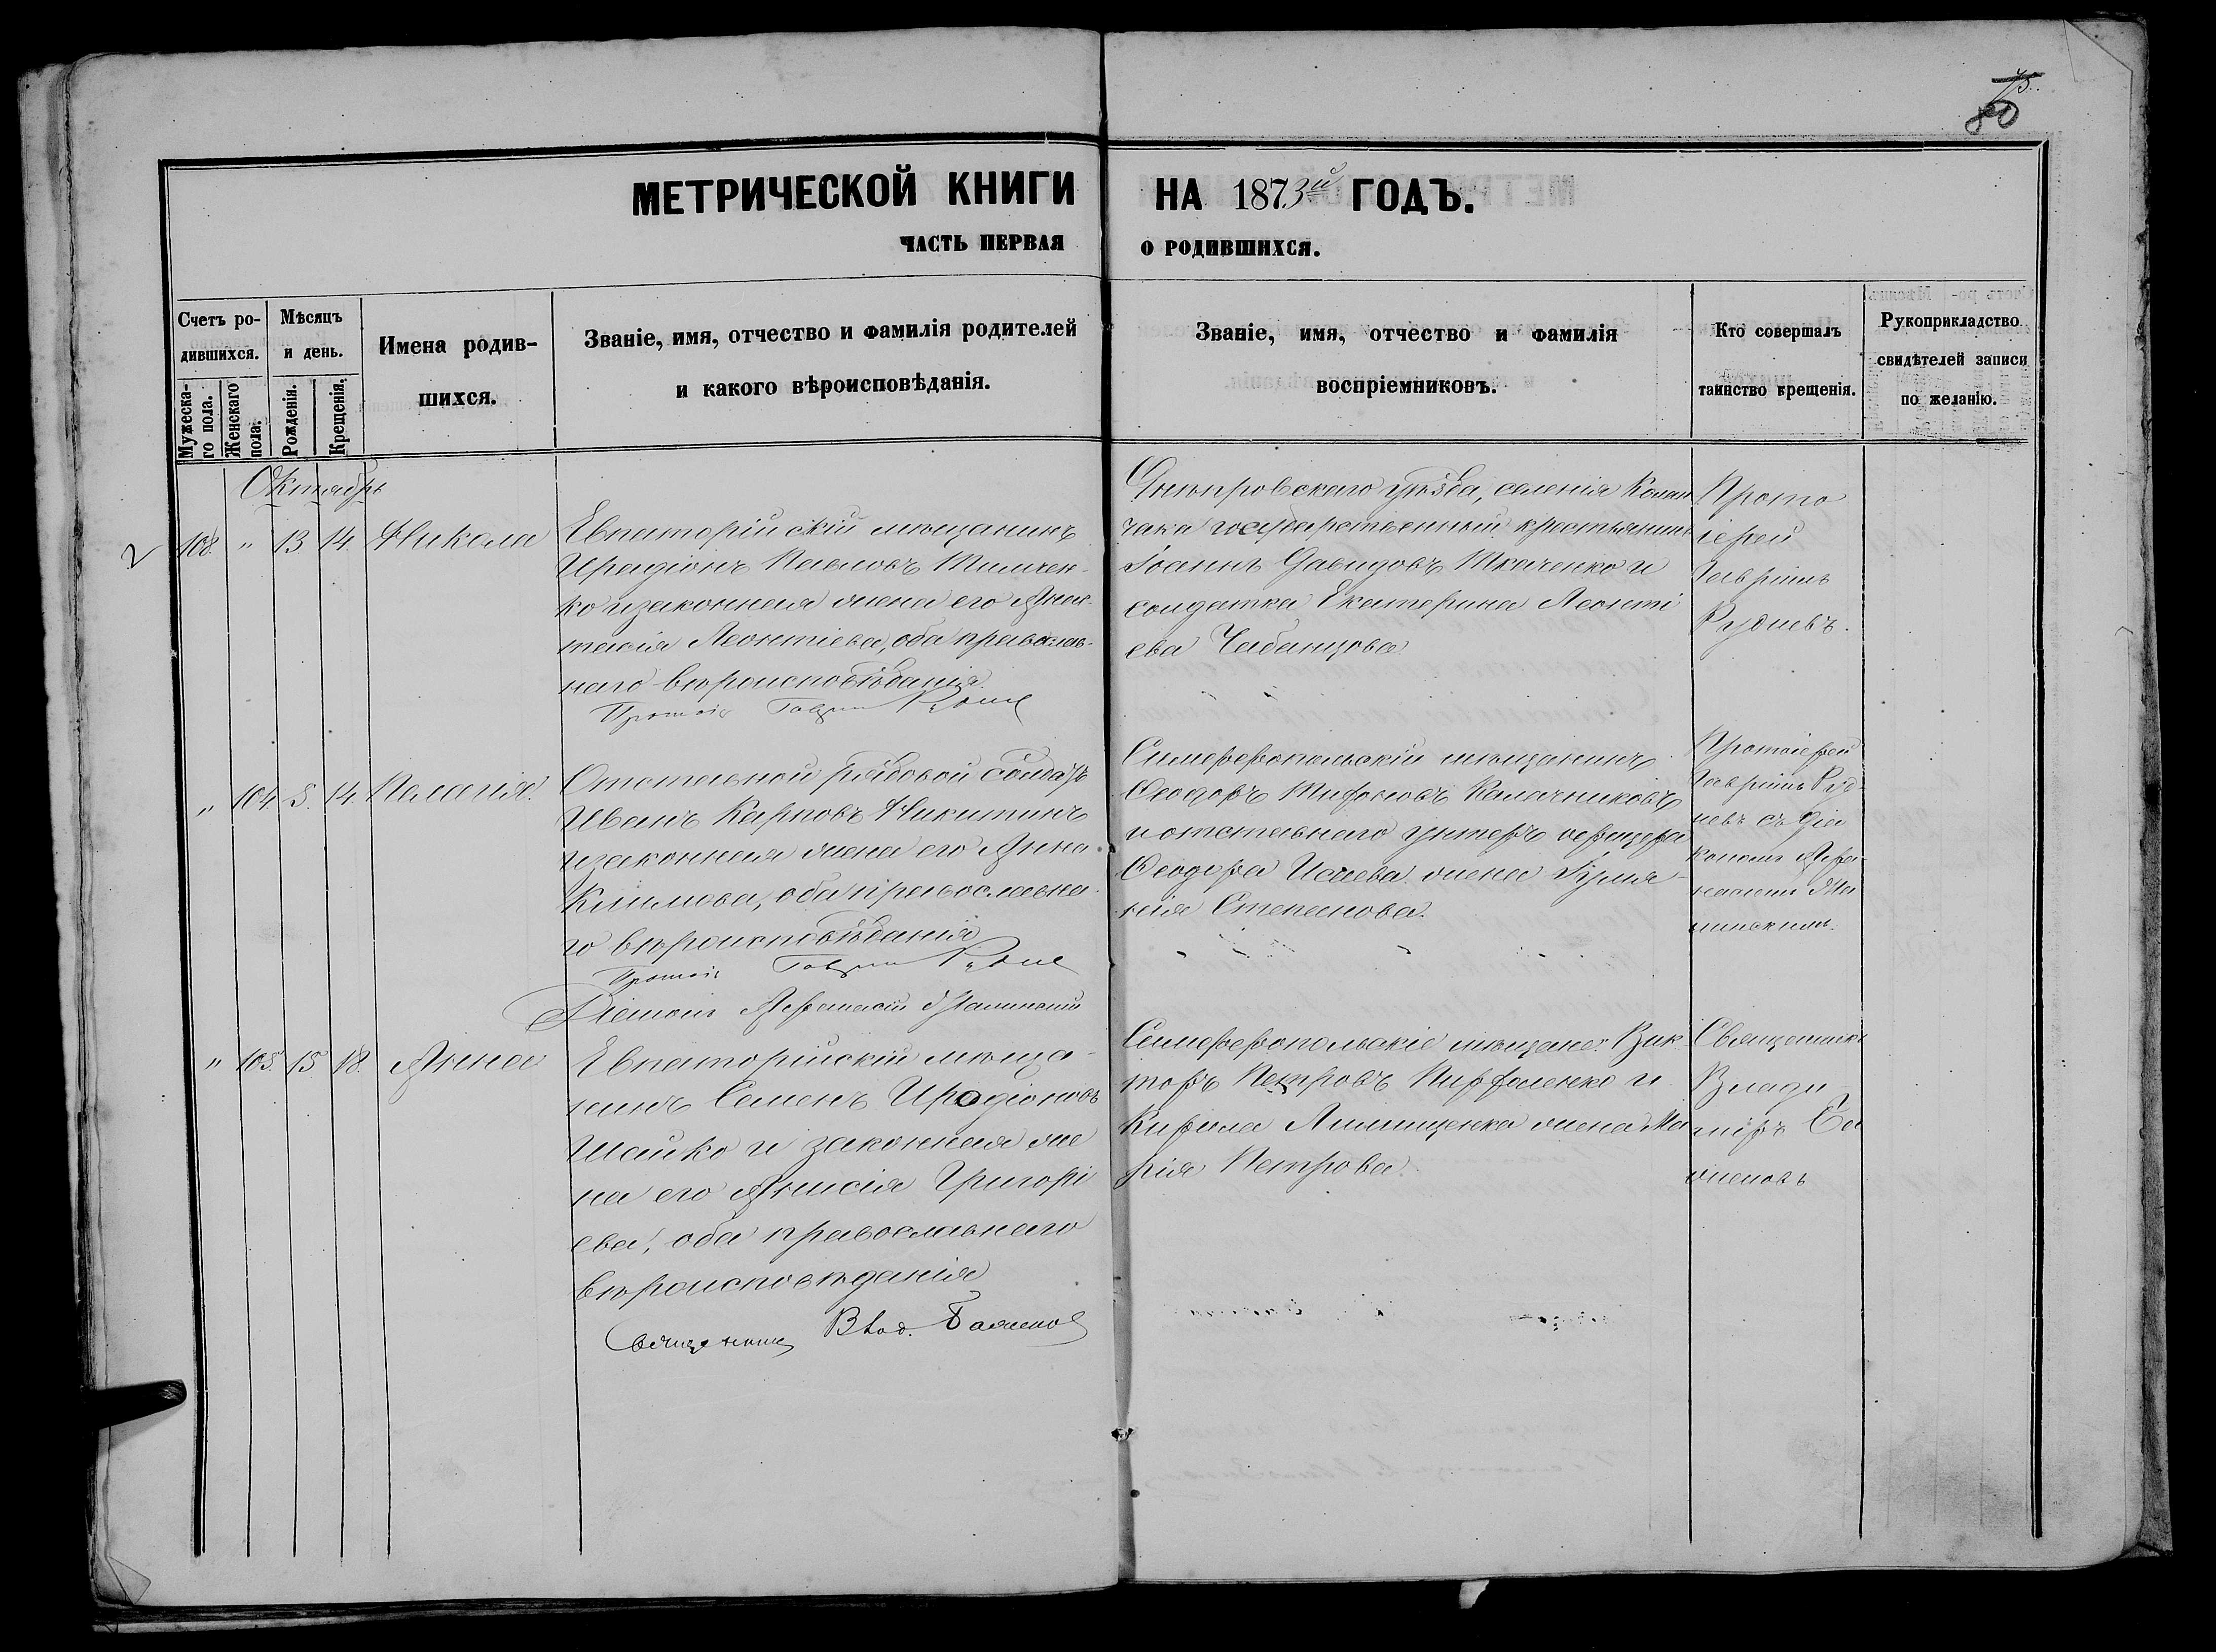 75.
80
МЕТРИЧЕСКОЙ КНИГИ НА 1873й ГОДЪ.
ЧАСТЬ ПЕРВАЯ О РОДИВШИХСЯ.
Счетъ ро-
дившихся.
Мужеска-
го пола.
Женскаго
пола.
Мѣсяцъ
и день.
Рожденія.
Крещенія.
Имена родив-
шихся.
Званіе, имя, отчество и фамилія родителей
и какого вѣроисповѣданія.
Званіе, имя, отчество и фамилія
воспріемниковъ.
Кто совершалъ
таинство крещенія.
Рукоприкладство
свидѣтелей записи
по желанію.
Октябрь
108. " 13 14. Никола
Евпаторійскій мѣщанинъ
Иродіонъ Павловъ
ко и законная жена его Анас-
тасія Леонтіева, оба православ-
наго вѣроисповѣданія.
Днѣпровскаго уѣзда, селенія Калан
чака государственный крестьянинъ
Іоаннъ Давидовъ Ткаченко и
солдатка Екатерина Леонті
ева Чабанцова.
Прото
іерей
Гавріилъ
Рудневъ.
" 104. 8. 14. Палагія.
Отставной рядовой солдатъ
Иванъ Карповъ Никитинъ
и законная жена его Анна
Климова, оба православна-
го вѣроисповѣданія
Діаконъ Афанасій
Симферопольскій мѣщанинъ
Ѳеодоръ Калачниковъ
и отставнаго унтеръ офицера
Ѳеодора Исаева жена
нія Степанова.
Протоіерей
Гавріилъ Руд-
невъ съ діа
кономъ Афа-
насіемъ
" 105. 15. 18. Анна
Евпаторійскій мѣща-
нинъ Семенъ Иродіоновъ
Шайко и законная же
на его Анисія Григорі
ева, оба православнаго
вѣроисповѣданія
Священникъ Влад. Баженов
Симферопольскіе мѣщане: Вик
торъ Петровъ и
Кирила жена Ма
рія Петрова.
Священникъ
Влади
міръ Ба
женовъ